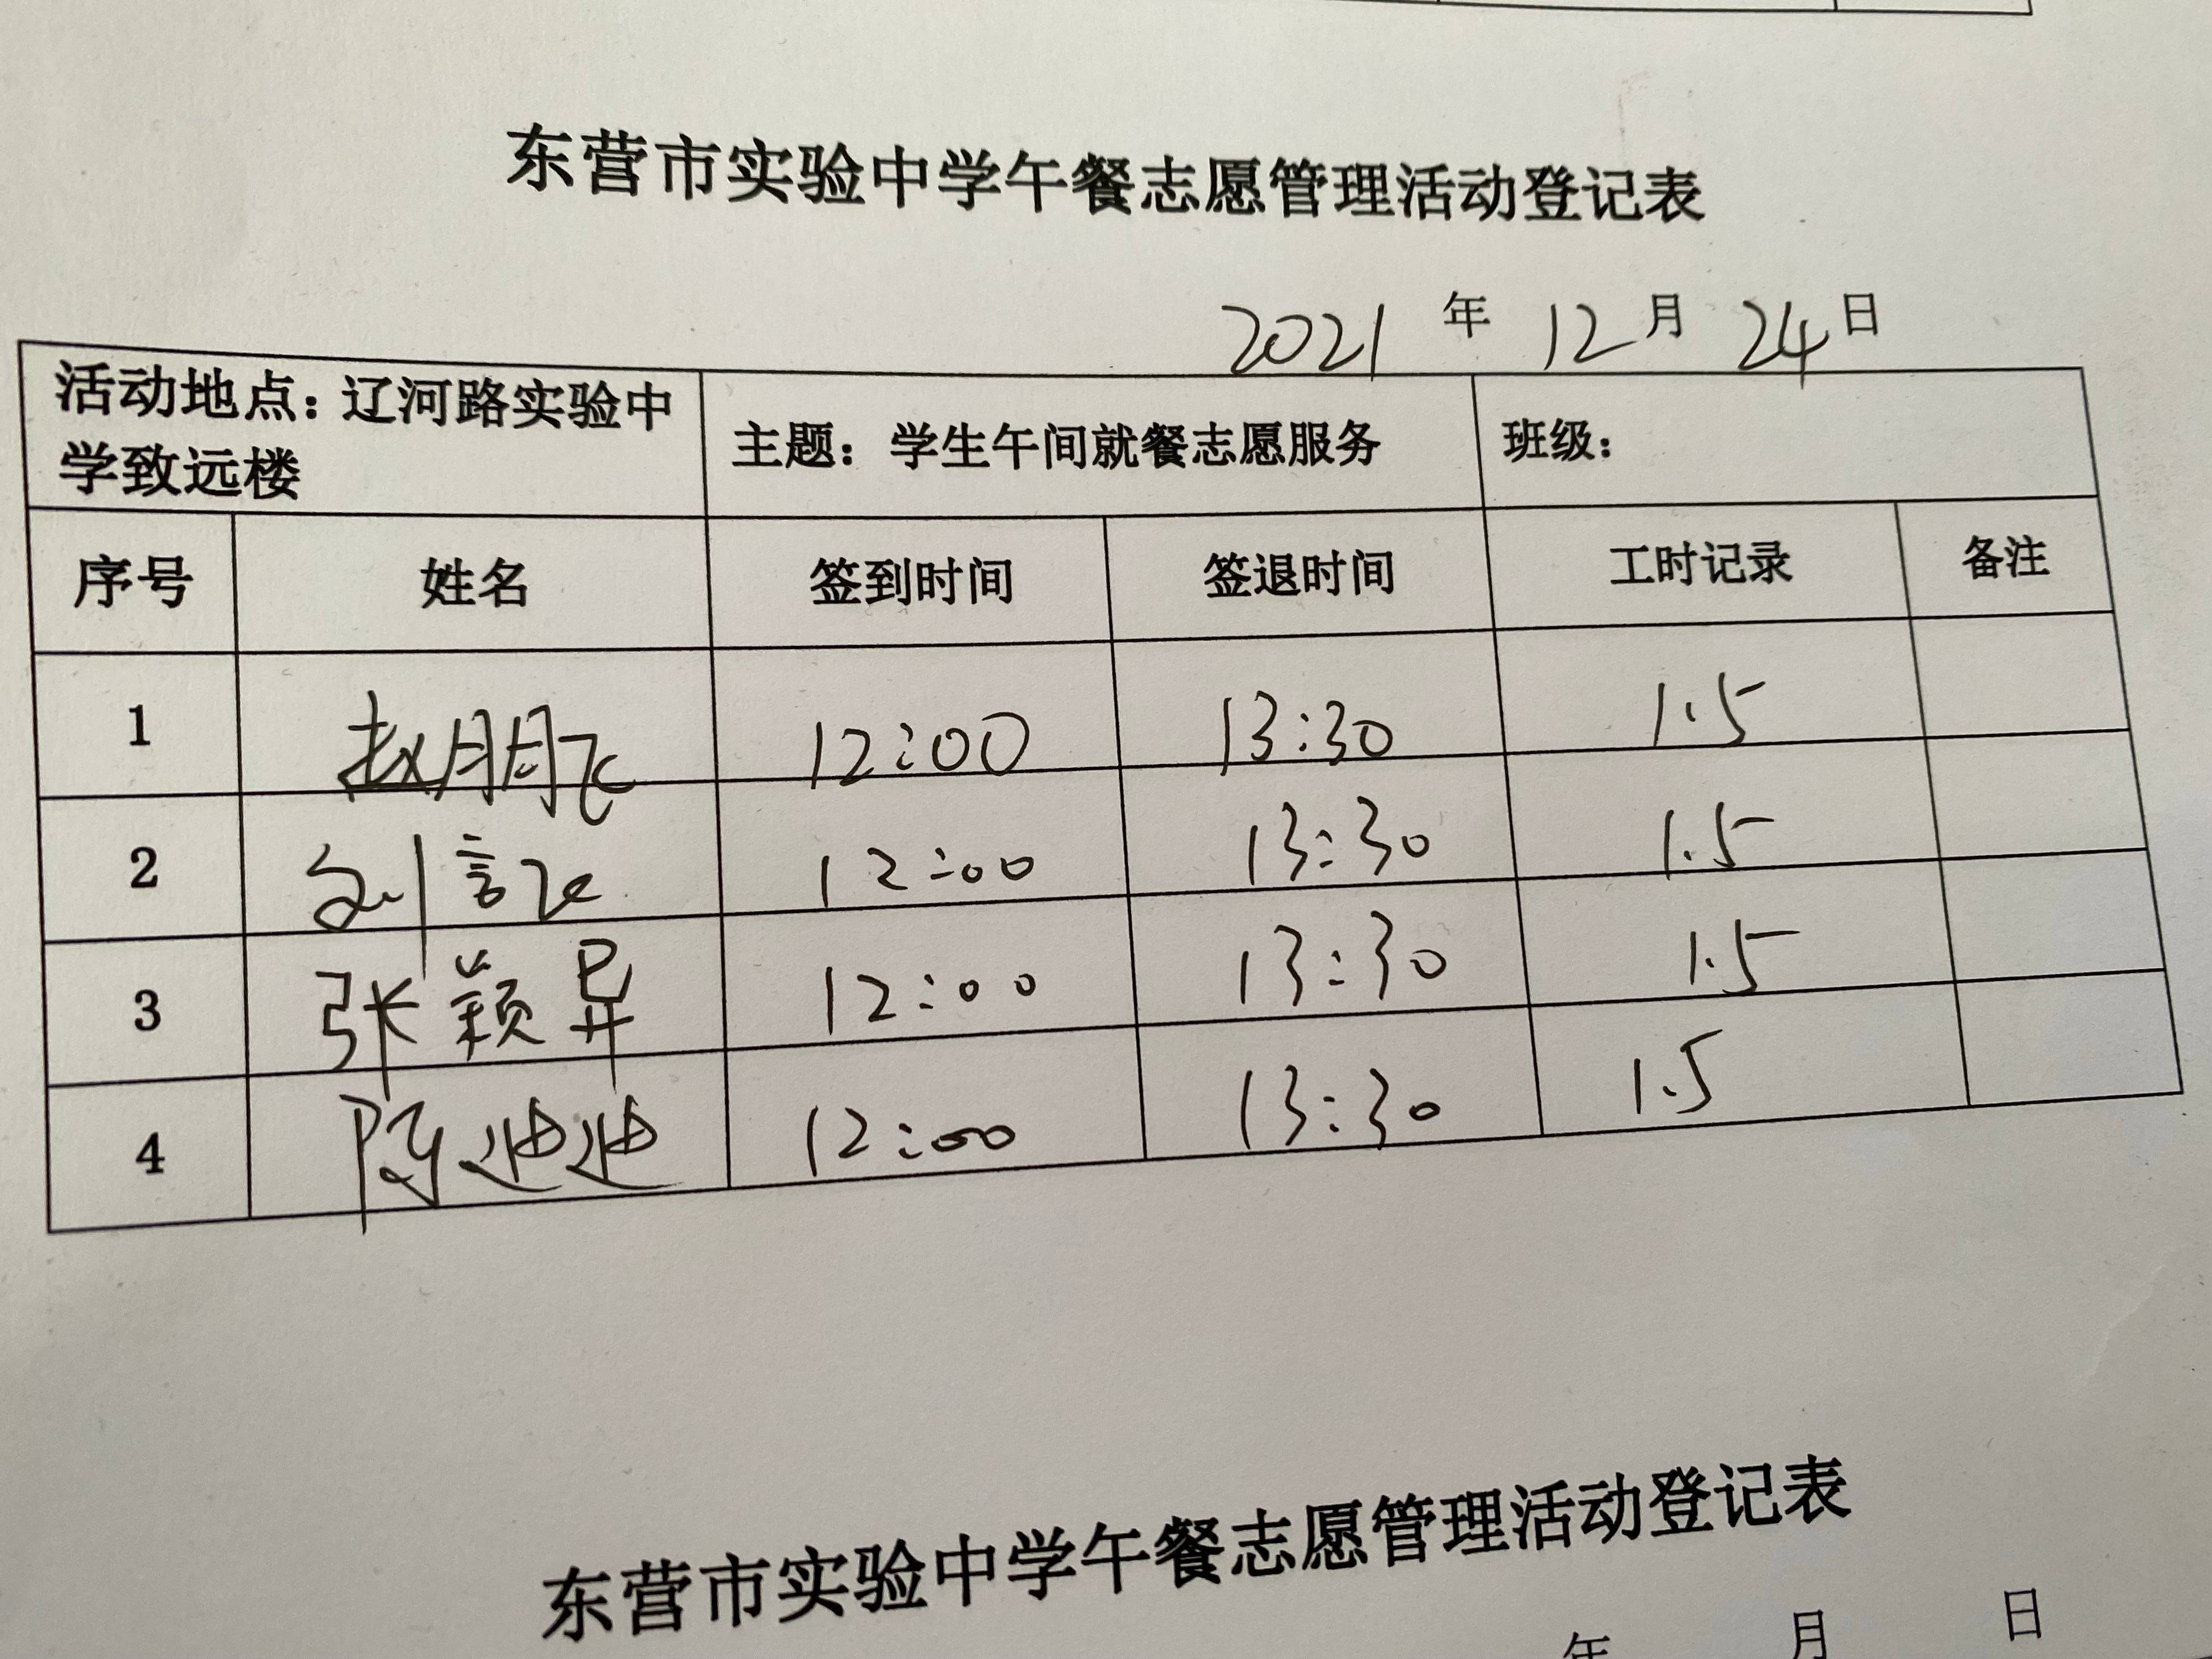 东营市实验中学午餐志愿管理活动登记表
2021 年 12 月 24 日
活动地点：辽河路实验中
学致远楼
主题： 学生午间就餐志愿服务
班级：
序号 姓名 签到时间 签退时间 工时记录 备注
1 赵朋飞 12:00 13:30 1.5
2 刘 12:00 13:30 1.5
3 张颖异 12:00 13:30 1.5
4 陈迪迪 12:00 13:30 1.5
东营市实验中学午餐志愿管理活动登记表
年 月 日